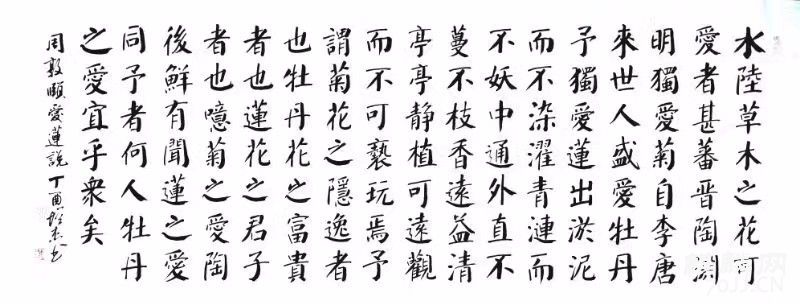 水陸草木之花可
愛者甚蕃晋陶淵
明獨愛菊自李唐
來世人盛愛牡丹
予獨愛蓮出淤泥
而不染濯青漣而
不妖中通外直不
蔓不枝香遠益清
亭亭静植可遠觀
而不可褻玩焉予
謂菊花之隱逸者
也牡丹花之富貴
者也蓮花之君子
者也噫菊之愛陶
後鮮有聞蓮之愛
同予者何人牡丹
之愛宜乎衆矣
周敦頤愛蓮説丁酉